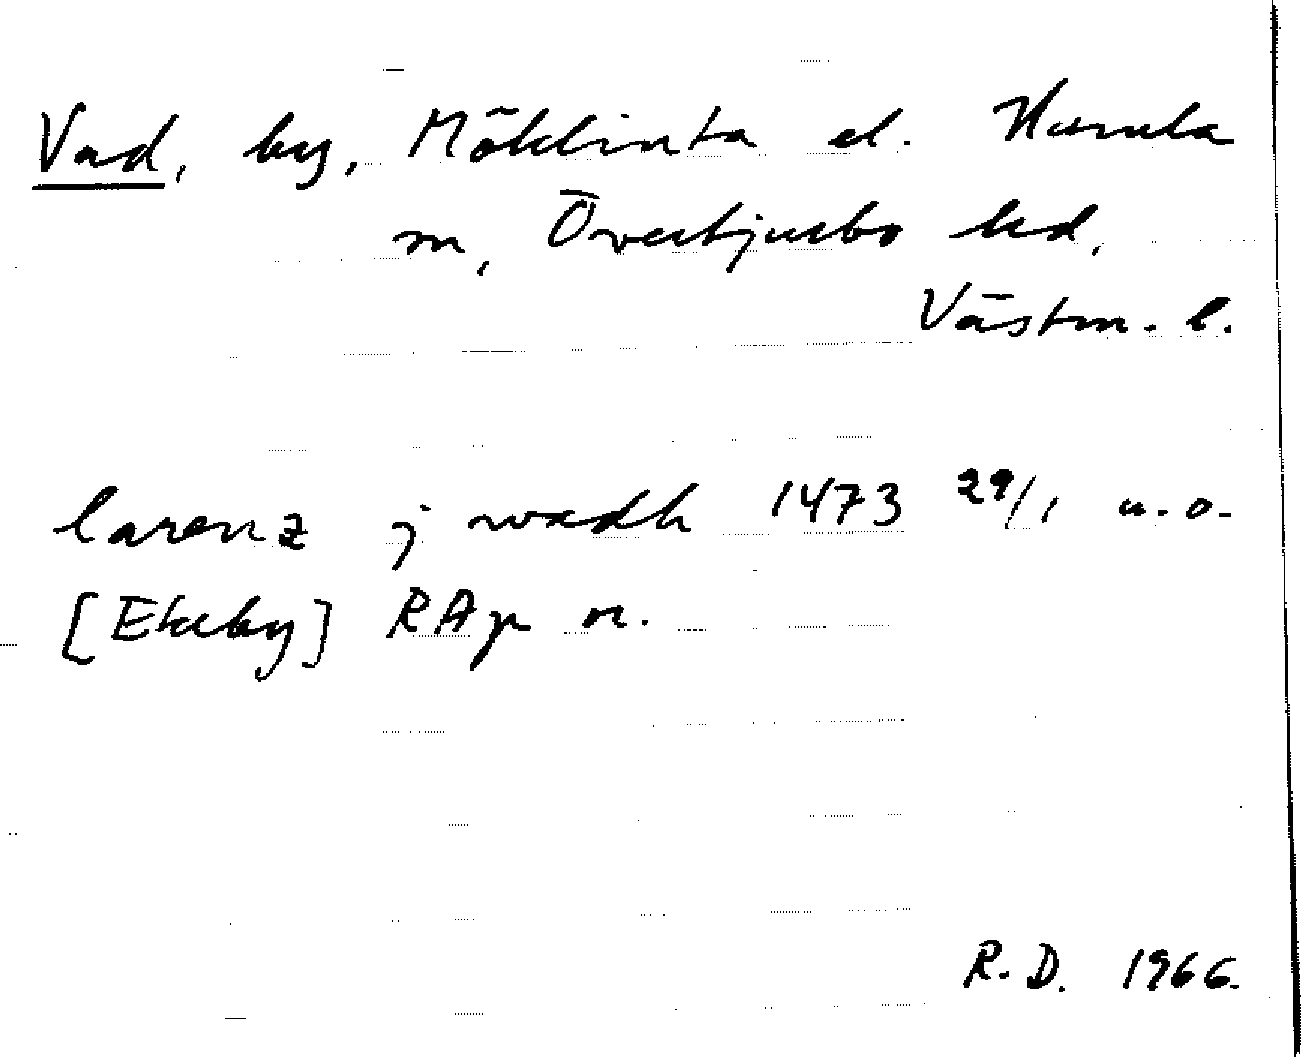 Vad, by, Möklinta el. Harula
sn, Övertjurbo hd,
Västm. l.
larenz j wadh 1473 29/1 u.o.
[Ekeby] RAp or.
R.D. 1966.